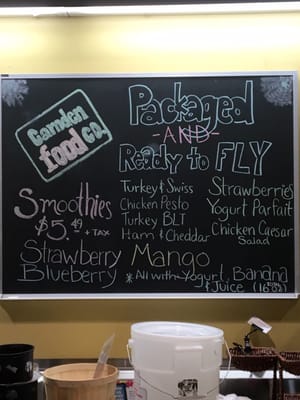 Camden
food co.
Packaged
-AND-
Ready to FLY
Smoothies
$5.49 + TAX
Turkey & Swiss
Chicken Pesto
Turkey BLT
Ham & Cheddar
Strawberries
Yogurt Parfait
Chicken Caesar
Salad
Strawberry Mango
Blueberry
*All with Yogurt, Banana
& Juice (16oz)